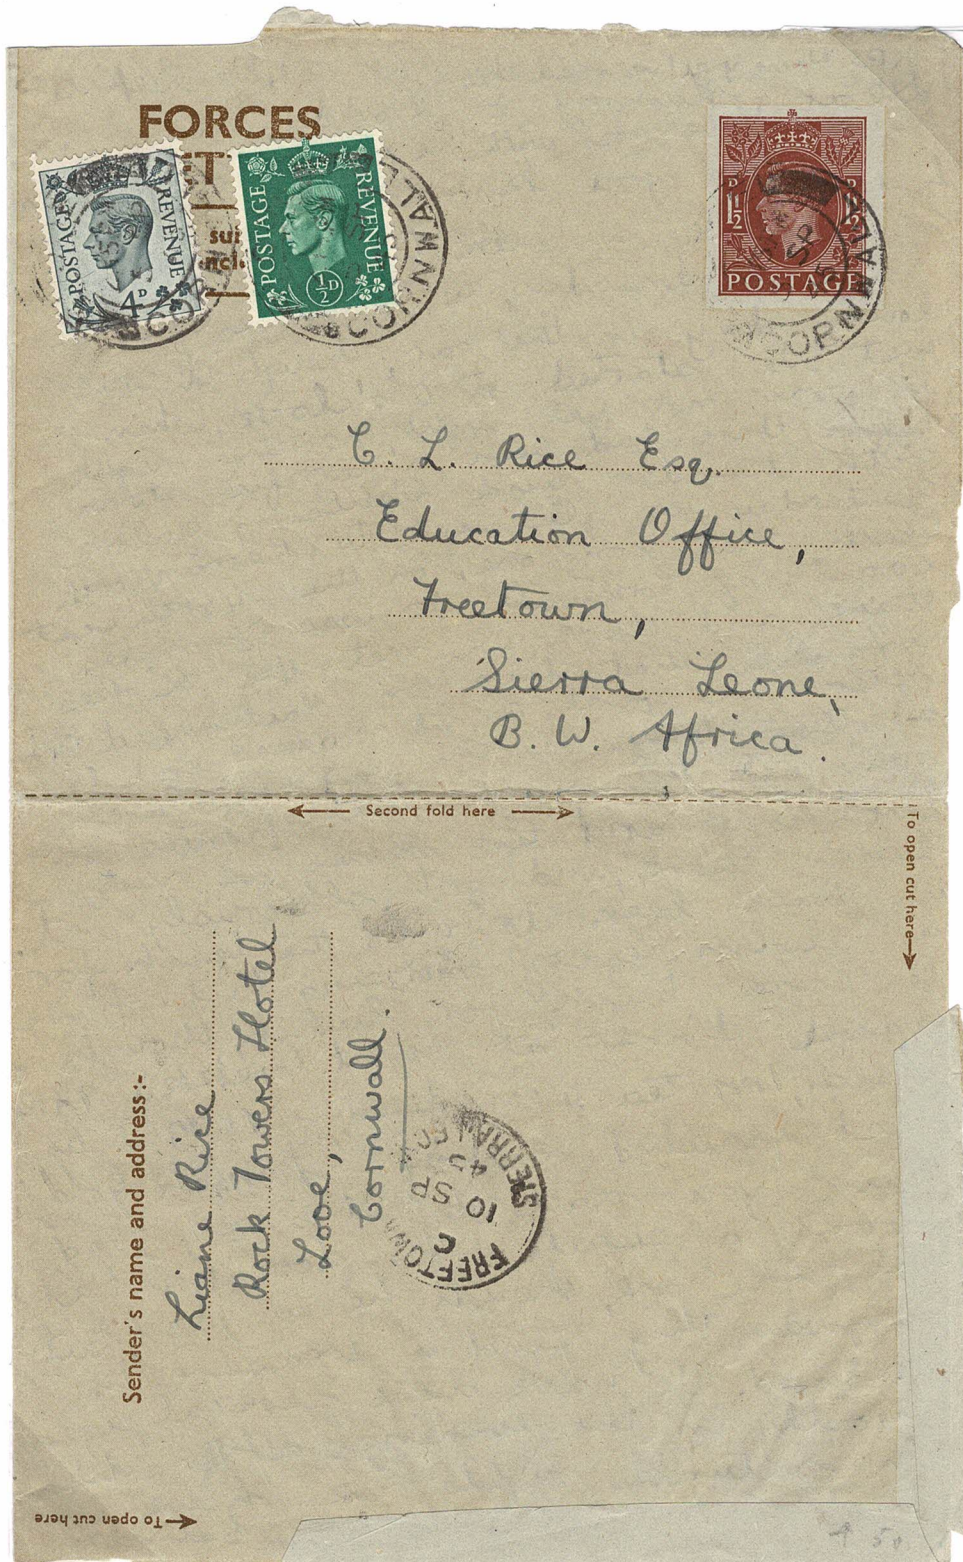 FORCES
POSTAGE REVENUE
4D
POSTAGE REVENUE
½D
1½
D
POSTAGE
CORNWALL
CORNWALL
CORNWALL
C. L. Rice Esq.
Education Office,
Freetown,
Sierra Leone,
B. W. Africa.
Second fold here
To open cut here
Sender's name and address :-
Liane Rice
Rock Towers Hotel
Looe,
Cornwall.
FREETOWN
C
10 SP
SIERRA
To open cut here
50